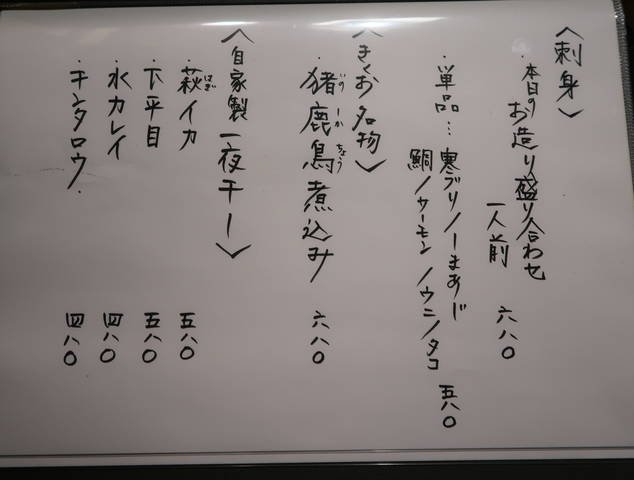 〈刺身〉
・本日のお造り盛り合わせ
一人前 六八〇
・単品…寒ブリ/しまあじ
鯛/サーモン/ウニ/タコ 五八〇
〈きくお名物〉
猪鹿鳥煮込み 六八〇
いのしかちょう
〈自家製一夜干し〉
・萩イカ 五八〇
はぎ
・下平目 五八〇
・水カレイ 四八〇
・キンタロウ・ 四八〇